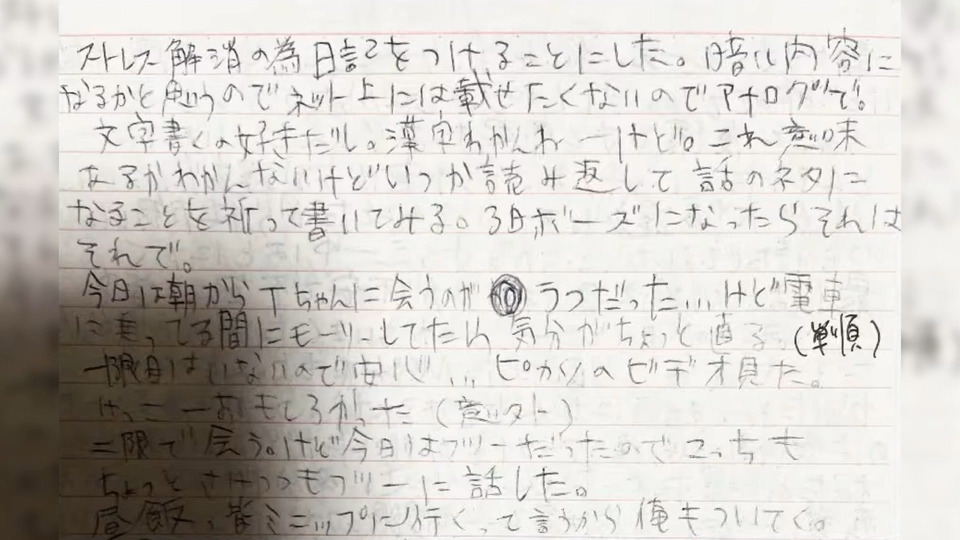 ストレス解消の為日記をつけることにした。暗い内容に
なるかと思うのでネット上には載せたくないのでアナログで。
文字書くの好きだし。漢字わかんねーけど。これ意味
あるかわかんないけどいつか読み返して話のネタに
なることを祈って書いてみる。3日ボーズになったらそれは
それで。
今日は朝からTちゃんに会うのが うつだった...けど電車
に乗ってる間にモーツァーしてたら気分がちょっと直る。(単順)
一限目はいないので安心... ピカソのビデオ見た。
けっこーおもしろかった(意外)
二限で会う。けど今日はフツーだったのでこっちも
ちょっとさけつつもフツーに話した。
昼飯、皆ミニップに行くって言うから俺もついてく。